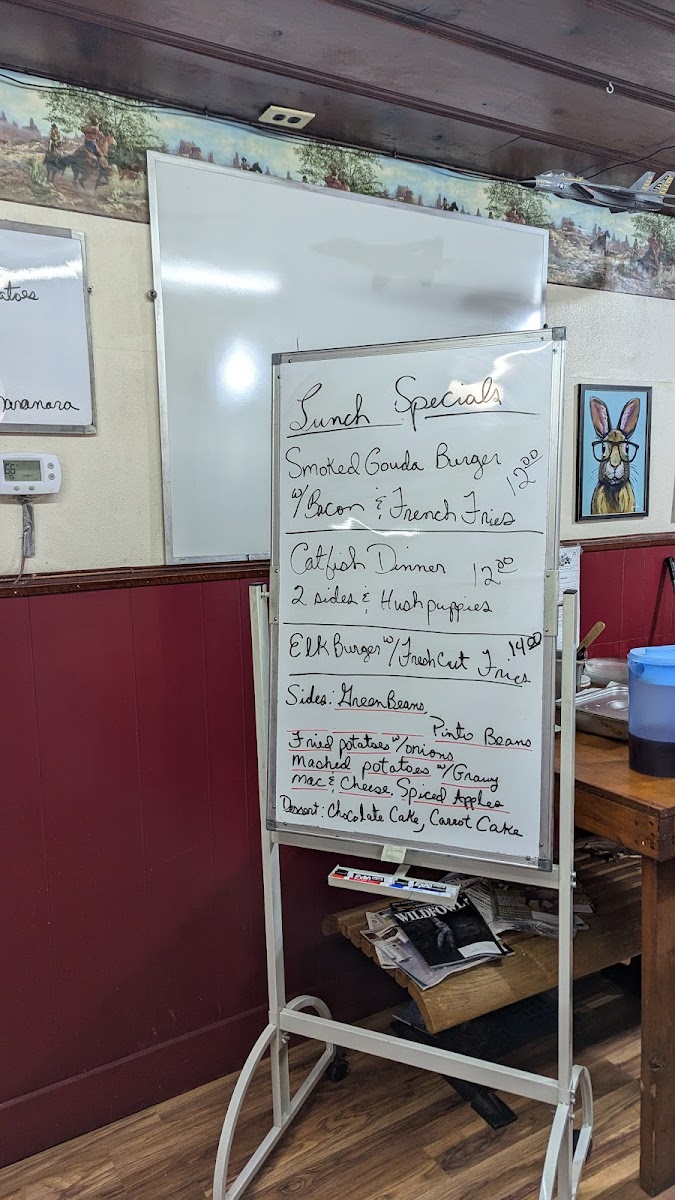 atoes
aranara
86
Lunch Specials
Smoked Gouda Burger
w/Bacon & French Fries 12.00
Catfish Dinner 12.00
2 sides & Hushpuppies
Elk Burger w/ Fresh Cut Fries 14.00
Sides: Green Beans,
Pinto Beans
Fried potatoes w/onions
Mashed potatoes w/Gravy
Mac & Cheese, Spiced Apples
Dessert: Chocolate Cake, Carrot Cake
EXPO
WILDFOWL